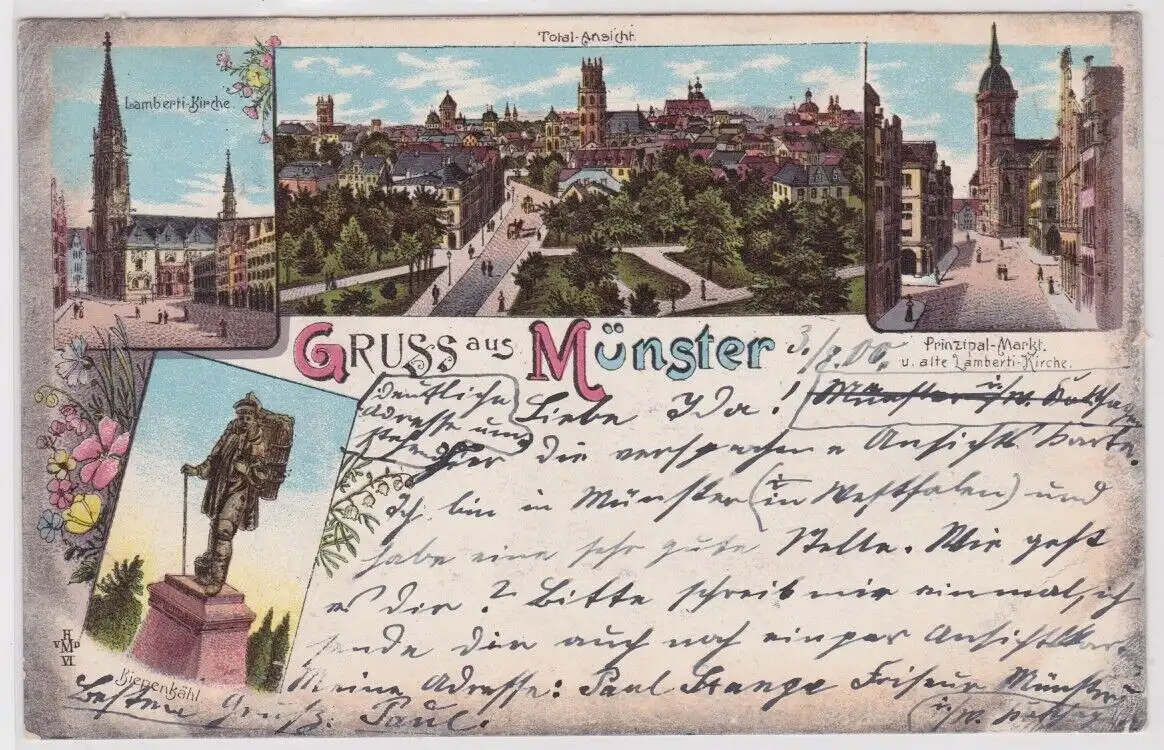 Total-Ansicht.
Lamberti-Kirche.
GRUSS aus Münster
3./7.00.
Prinzipal-Markt.
u. alte Lamberti-Kirche.
deutliche
Adresse und
Liebe Ida!
Münster i/W.
Hier die versprochene Ansichtskarte.
Ich bin in Münster (in Westfalen) und
habe eine sehr gute Stelle. Wie geht
es dir? Bitte schreib mir einmal, ich
sende dir auch noch ein par Ansichtskar
Meine Adresse: Paul Stange Friseur Münster
i/W.
Kiepenkähl
H
VMD
VI
Besten Gruß. Paul.